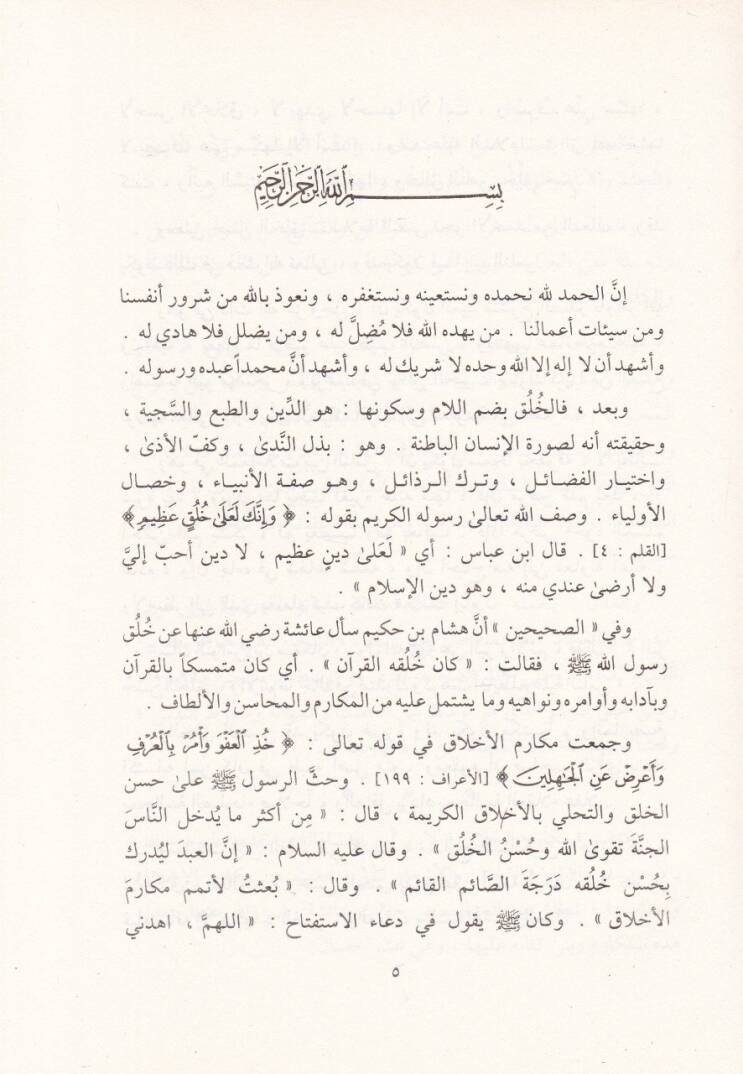 بِسْمِ اللَّهِ الرَّحْمَٰنِ الرَّحِيمِ
إنَّ الحمد لله نحمده ونستعينه ونستغفره ، ونعوذ بالله من شرور أنفسنا
ومن سيئات أعمالنا . من يهده الله فلا مُضِلَّ له ، ومن يضلل فلا هادي له .
وأشهد أن لا إله إلا الله وحده لا شريك له ، وأشهد أنَّ محمداً عبده ورسوله .
وبعد ، فالخُلُق بضم اللام وسكونها : هو الدِّين والطبع والسَّجية ،
وحقيقته أنه لصورة الإنسان الباطنة . وهو : بذل النَّدىٰ ، وكفّ الأذىٰ ،
واختيار الفضائل ، وترك الرذائل ، وهو صفة الأنبياء ، وخصال
الأولياء . وصف الله تعالىٰ رسوله الكريم بقوله : ﴿ وَإِنَّكَ لَعَلَىٰ خُلُقٍ عَظِيمٍ ﴾
[القلم : ٤] . قال ابن عباس : أي « لَعَلىٰ دينٍ عظيم ، لا دين أحبّ إليَّ
ولا أرضىٰ عندي منه ، وهو دين الإسلام » .
وفي « الصحيحين » أنَّ هشام بن حكيم سأل عائشة رضي الله عنها عن خُلُق
رسول الله ﷺ ، فقالت : « كان خُلُقه القرآن » . أي كان متمسكاً بالقرآن
وبآدابه وأوامره ونواهيه وما يشتمل عليه من المكارم والمحاسن والألطاف .
وجمعت مكارم الأخلاق في قوله تعالى : ﴿ خُذِ ٱلْعَفْوَ وَأْمُرْ بِٱلْعُرْفِ
وَأَعْرِضْ عَنِ ٱلْجَٰهِلِينَ ﴾ [الأعراف : ١٩٩] . وحثَّ الرسول ﷺ علىٰ حسن
الخلق والتحلي بالأخلاق الكريمة ، قال : « مِن أكثر ما يُدخل النَّاسَ
الجنَّةَ تقوىٰ الله وحُسْنُ الخُلُق » . وقال عليه السلام : « إنَّ العبدَ ليُدرك
بِحُسْن خُلُقه دَرَجَةَ الصَّائم القائم » . وقال : « بُعثتُ لأتمم مكارمَ
الأخلاق » . وكان ﷺ يقول في دعاء الاستفتاح : « اللهمَّ ، اهدني
٥